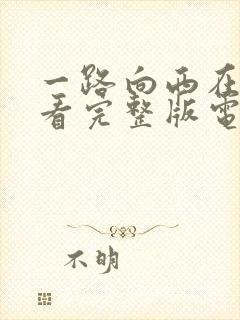 一路向西在
看完整版電
不明